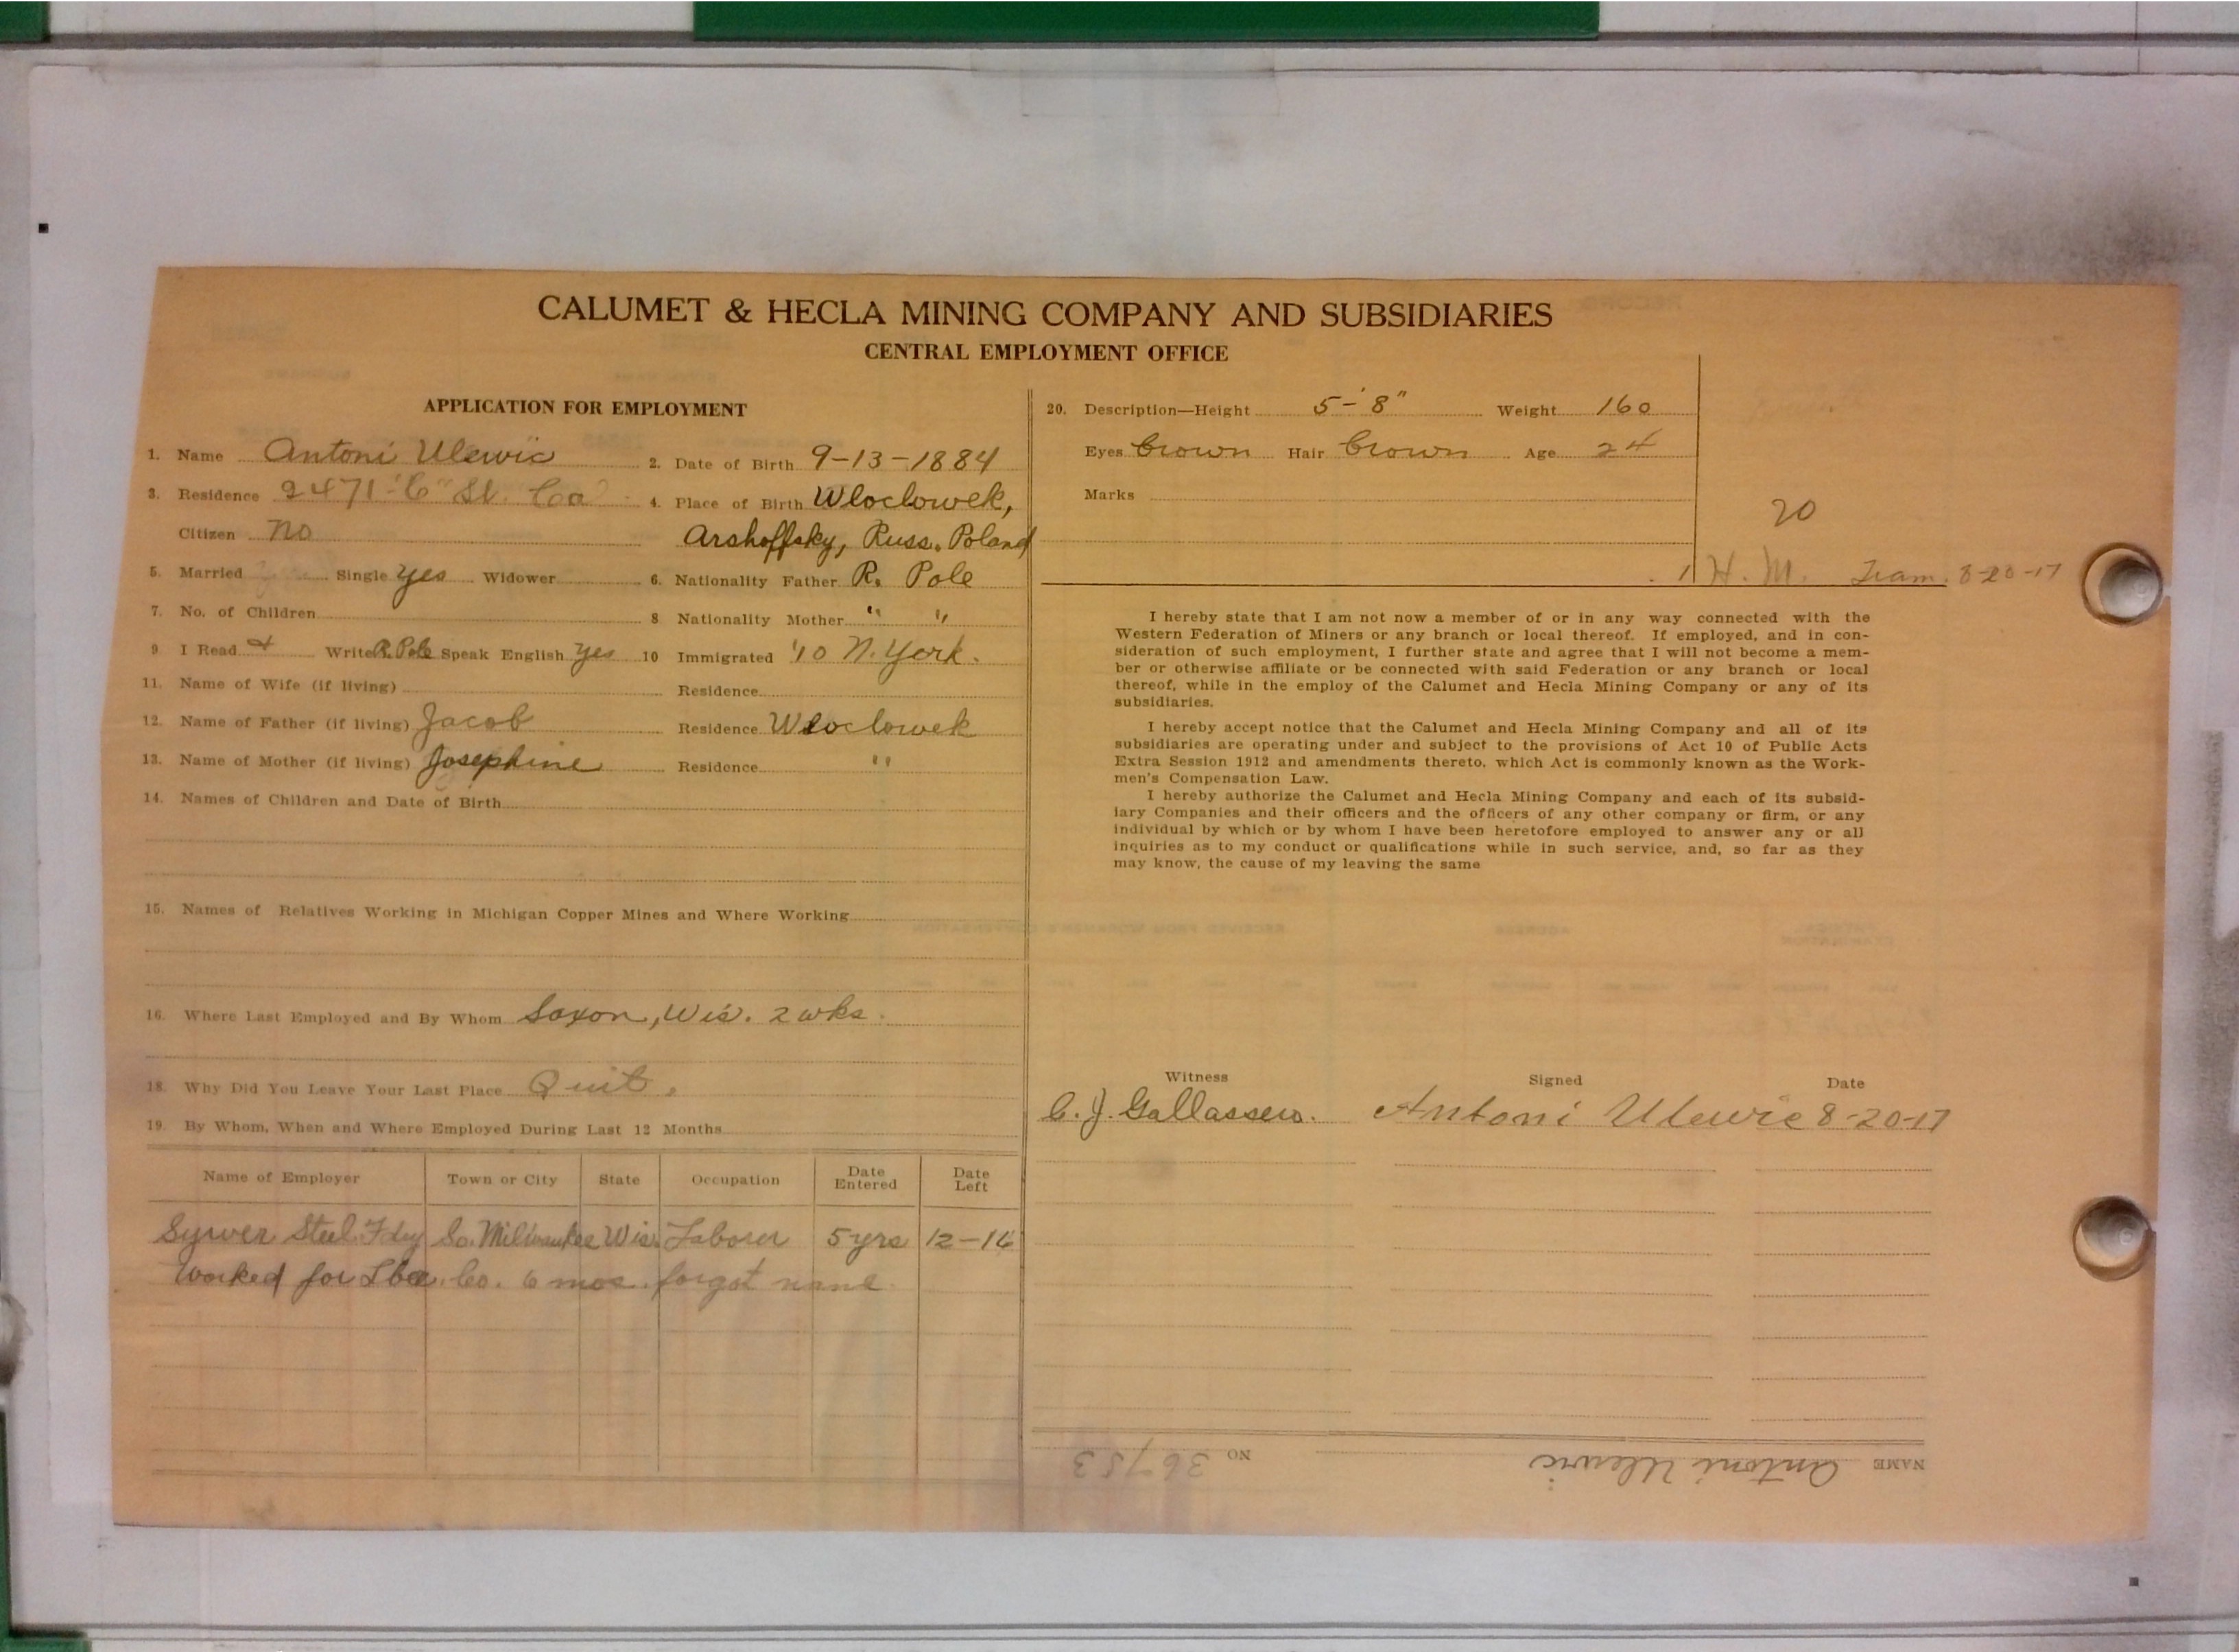 CALUMET & HECLA MINING COMPANY AND SUBSIDIARIES
CENTRAL EMPLOYMENT OFFICE
APPLICATION FOR EMPLOYMENT
1. Name Antoni Ulewic 2. Date of Birth 9-13-1884
3. Residence 2471 "C" St. Ca 4. Place of Birth Wloclowek,
Citizen no Arshoffsky, Russ. Poland
5. Married Single yes Widower 6. Nationality Father R. Pole
7. No. of Children 8 Nationality Mother " "
9. I Read & Write R. Pole Speak English yes 10 Immigrated '10 N. York.
11. Name of Wife (if living) Residence
12. Name of Father (if living) Jacob Residence Wloclowek
13. Name of Mother (if living) Josephine Residence "
14. Names of Children and Date of Birth
15. Names of Relatives Working in Michigan Copper Mines and Where Working
16. Where Last Employed and By Whom Saxon, Wis. 2 wks.
18. Why Did You Leave Your Last Place Quit.
19. By Whom, When and Where Employed During Last 12 Months
Name of Employer Town or City State Occupation Date Entered Date Left
Sywer Steel Fdry So. Milwaukee Wis. Laborer 5 yrs 12-16
Worked for Lbr. Co. 6 mos. forgot name
20. Description—Height 5-'8" Weight 160
Eyes brown Hair brown Age 24
Marks
20
H. M. Tram. 8-20-17
I hereby state that I am not now a member of or in any way connected with the
Western Federation of Miners or any branch or local thereof. If employed, and in con-
sideration of such employment, I further state and agree that I will not become a mem-
ber or otherwise affiliate or be connected with said Federation or any branch or local
thereof, while in the employ of the Calumet and Hecla Mining Company or any of its
subsidiaries.
I hereby accept notice that the Calumet and Hecla Mining Company and all of its
subsidiaries are operating under and subject to the provisions of Act 10 of Public Acts
Extra Session 1912 and amendments thereto, which Act is commonly known as the Work-
men's Compensation Law.
I hereby authorize the Calumet and Hecla Mining Company and each of its subsid-
iary Companies and their officers and the officers of any other company or firm, or any
individual by which or by whom I have been heretofore employed to answer any or all
inquiries as to my conduct or qualifications while in such service, and, so far as they
may know, the cause of my leaving the same
Witness Signed Date
C. J. Gallassero. Antoni Ulewic 8-20-17
NAME Antoni Ulewic NO 36753